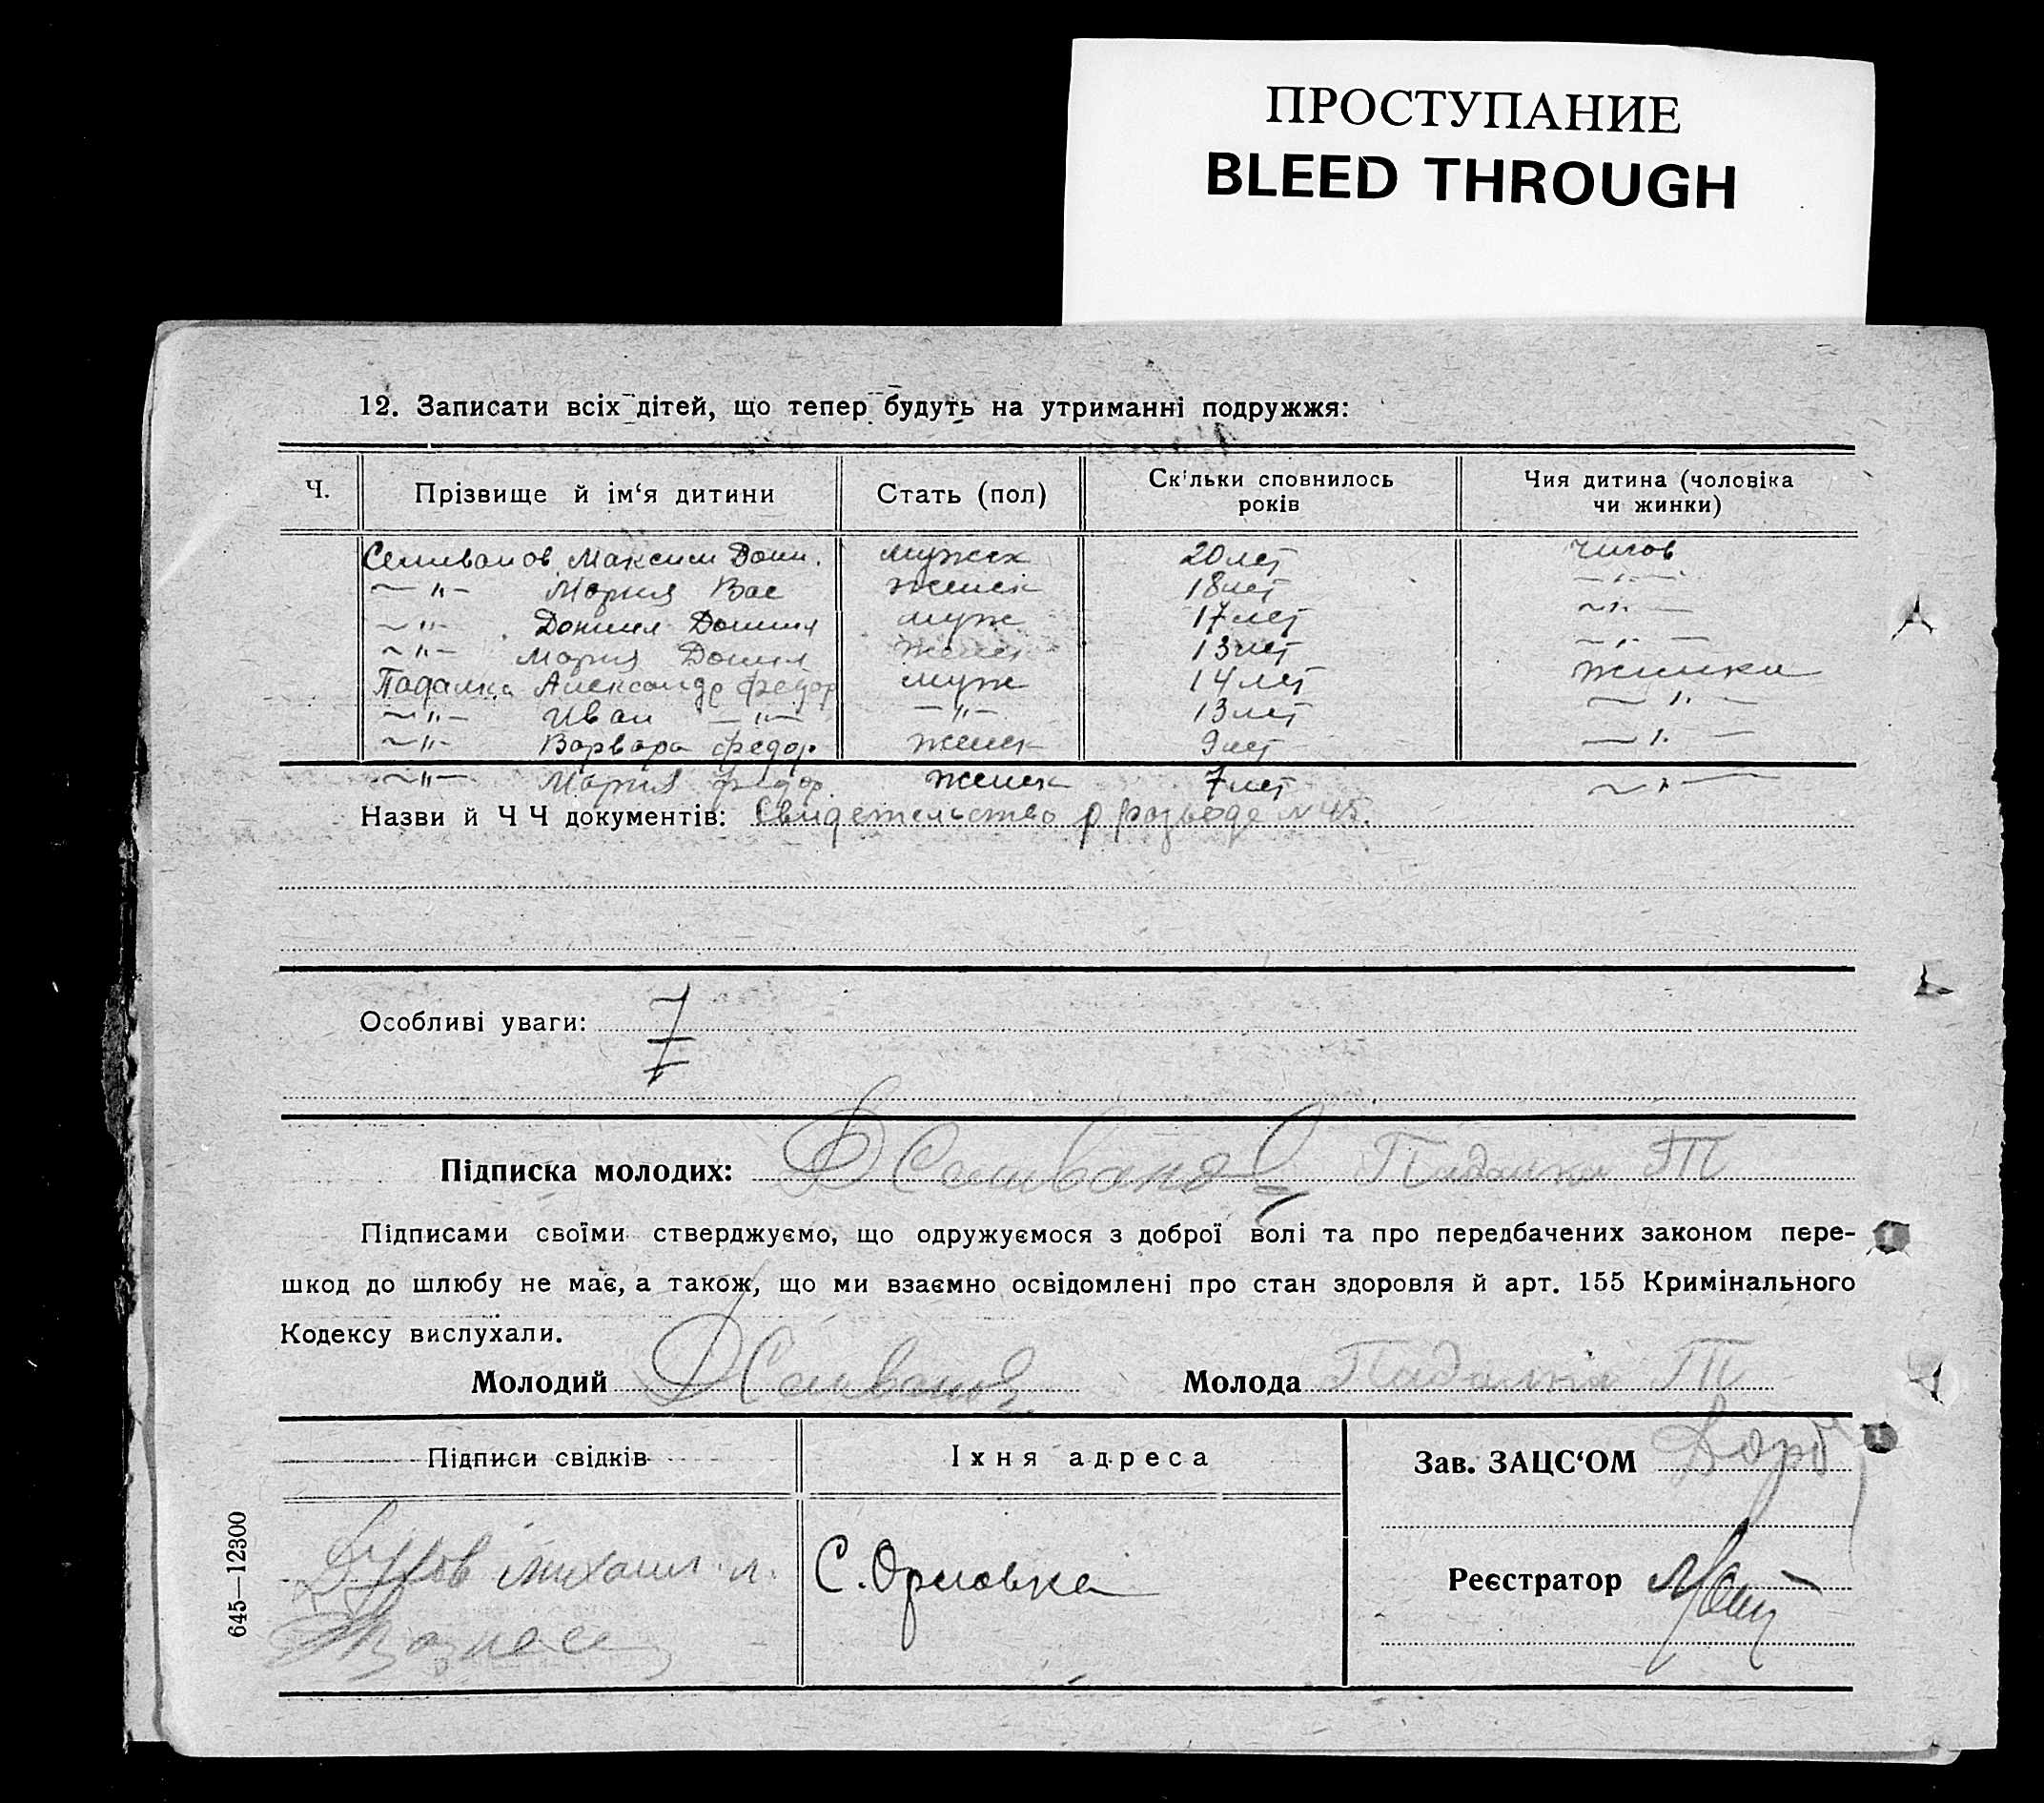 ПРОСТУПАНИЕ
BLEED THROUGH
12. Записати всіх дітей, що тепер будуть на утриманні подружжя:
Ч. Прізвище й ім‘я дитини Стать (пол) Скільки сповнилось років Чия дитина (чоловіка чи жинки)
Селиванов Максим Дани. мужск 20 лет
—"— Мария Вас женск 18 лет —"—
—"— Данила Данила муж 17 лет —"—
—"— Мария Данил женск 13 лет —"—
Падалка Александр Федор муж 14 лет жинки
—"— Иван —"— —"— 13 лет —"—
—"— Варвара Федор. женск 9 лет —"—
—"— Мария Федор. женск 7 лет —"—
Назви й Ч Ч документів: Свидетельство о разводе N 45.
Особливі уваги:
Підписка молодих: Д Селиванов Падалка Т
Підписами своїми стверджуємо, що одружуємося з доброї волі та про передбачених законом пере-
шкод до шлюбу не має, а також, що ми взаємно освідомлені про стан здоровля й арт. 155 Кримінального
Кодексу вислухали.
Молодий Д Селиванов Молода Падалка Т
Підписи свідків Їхня адреса Зав. ЗАЦС‘ОМ
Михаил С. Орловка Реєстратор
645—12300